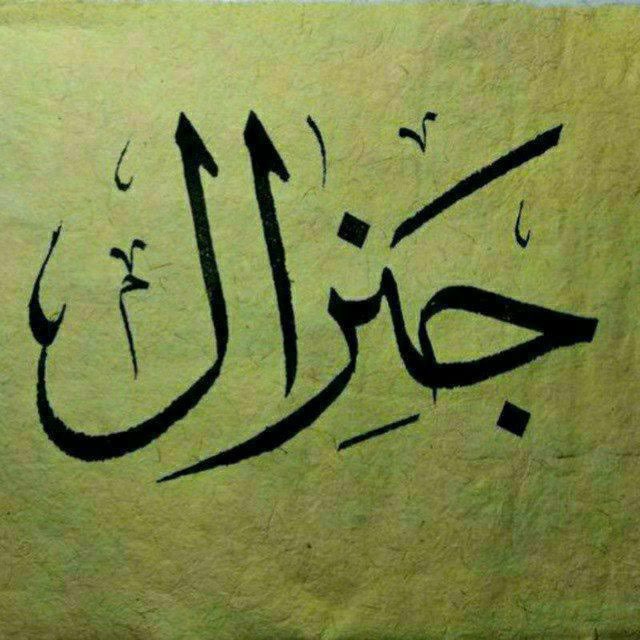 جَنِرال